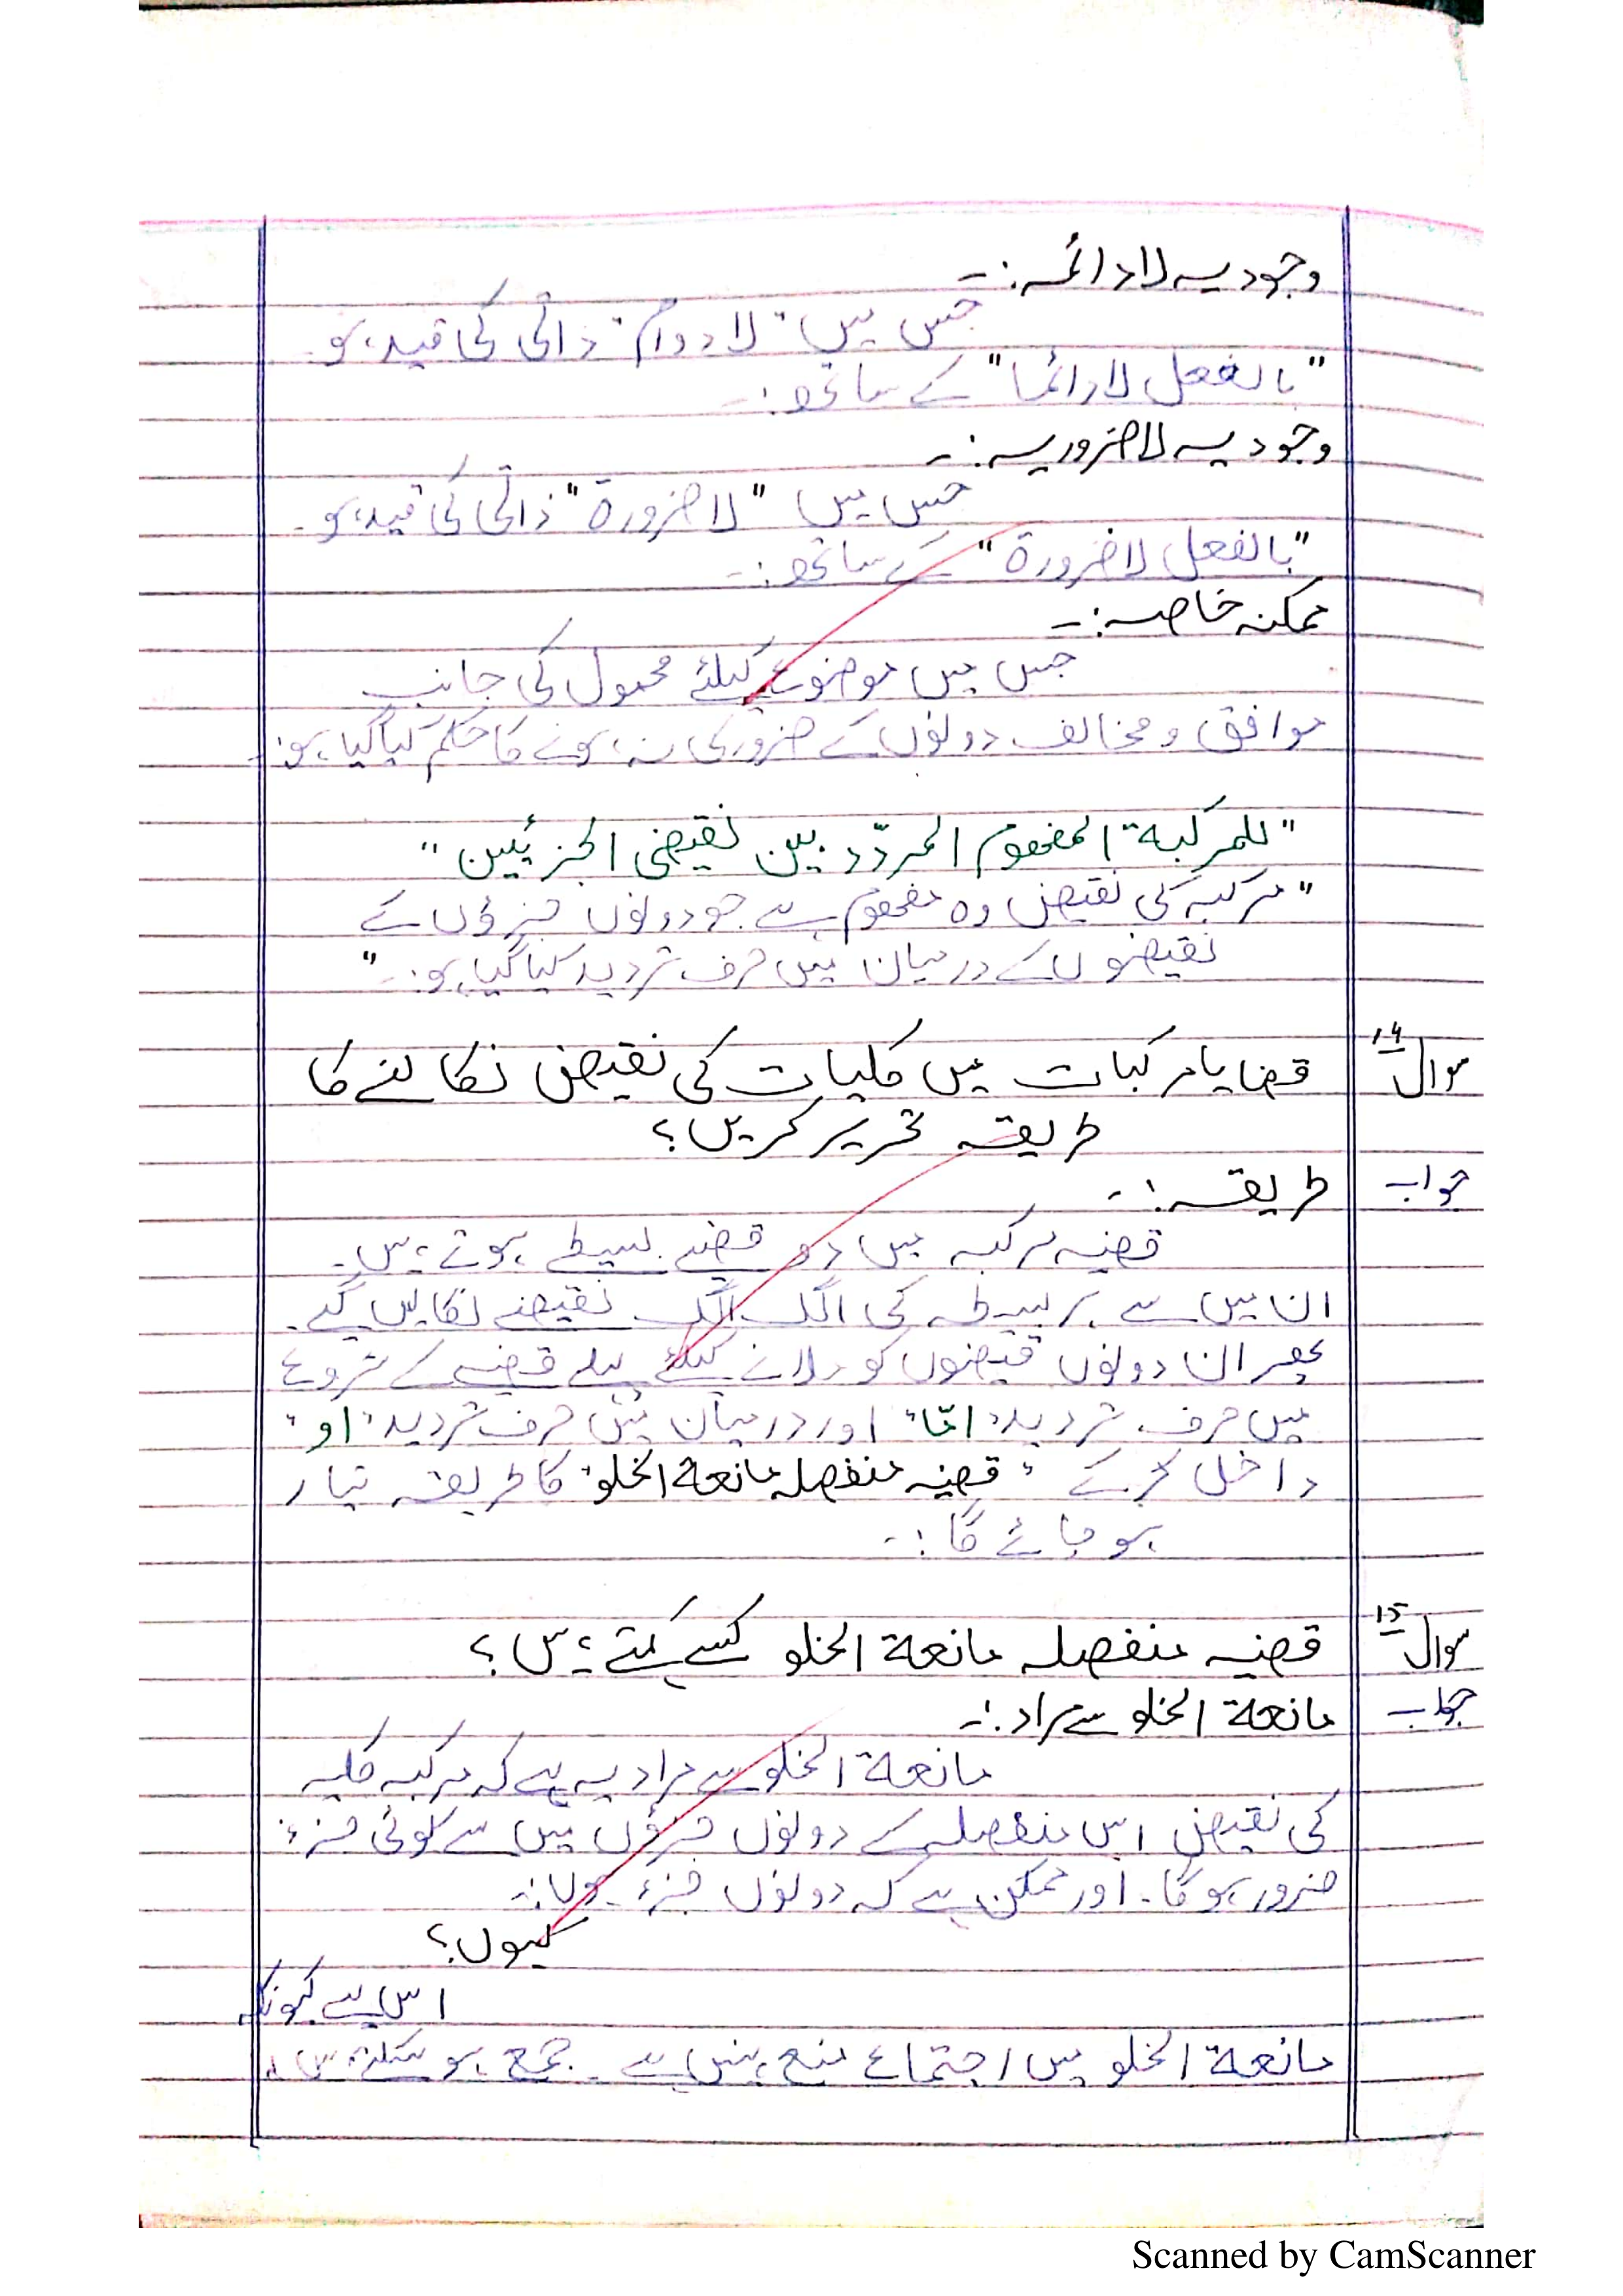 وجودیہ لا دائمہ:-
جس میں "لا دوام" ذاتی کی قید ہو۔
"بالفعل لا دائما" کے ساتھ:-
وجودیہ لا ضروریہ:-
جس میں "لا ضرورة" ذاتی کی قید ہو۔
"بالفعل لا ضرورة" کے ساتھ:-
ممکنہ خاصہ:-
جس میں موضوع کیلئے محمول کی جانب
موافق و مخالف دونوں کے ضروری نہ ہونے کا حکم کیا گیا ہو:-
"للمرکبة المفھوم المردّد بین نقیضی الجزئیین"
"مرکبہ کی نقیض وہ مفھوم ہے جو دونوں جزؤں کے
نقیضوں کے درمیان میں حرف تردید کیا گیا ہو:-"
سوال ۱۴ قضایا مرکبات میں کلیات کی نقیض نکالنے کا
طریقہ تحریر کریں؟
جواب طریقہ:-
قضیہ مرکبہ میں دو قضیے بسیطے ہوتے ہیں۔
ان میں سے ہر بسیطہ کی الگ الگ نقیضے نکالیں گے۔
پھر ان دونوں قیضوں کو ملانے کیلئے پہلے قضیہ کے شروع
میں حرف تردید "امّا" اور درمیان میں حرف تردید "او"
داخل کر کے "قضیہ منفصلہ مانعة الخلو" کا طریقہ تیار
ہو جائے گا:-
سوال ۱۵ قضیہ منفصلہ مانعة الخلو کسے کہتے ہیں؟
جواب مانعة الخلو سے مراد:-
مانعة الخلو سے مراد یہ ہے کہ مرکبہ کلیہ
کی نقیض اس منفصلہ کے دونوں جزؤں میں سے کوئی جزء
ضرور ہو گا۔ اور ممکن ہے کہ دونوں جزء ہوں:-
کیوں؟
اس لیے کیونکہ
مانعة الخلو میں اجتماع منع نہیں ہے۔ جمع ہو سکتے ہیں۔
Scanned by CamScanner